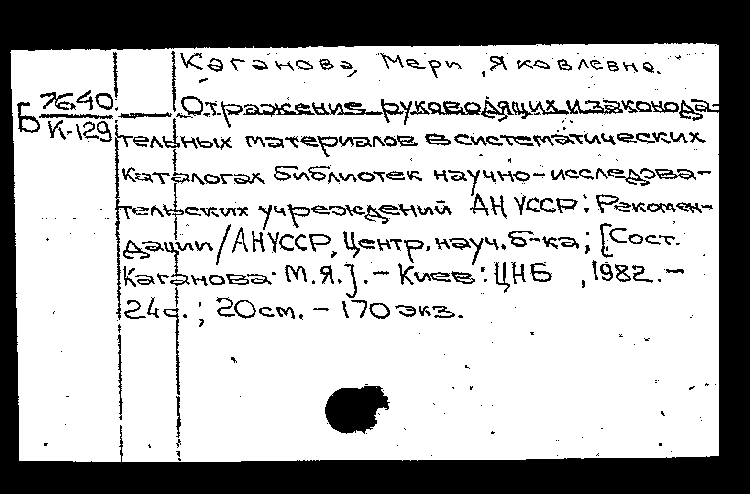 Каганова, Мери Яковлевна.
Б 7640
К-129
Отражение руководящих и законода-
тельных материалов в систематических
каталогах библиотек научно-исследова-
тельских учреждений АН УССР: Рекомен-
дации/АН УССР, Центр. науч. б-ка; [Сост.
Каганова М.Я.]. - Киев: ЦНБ, 1982. -
24с.; 20см. - 170 экз.